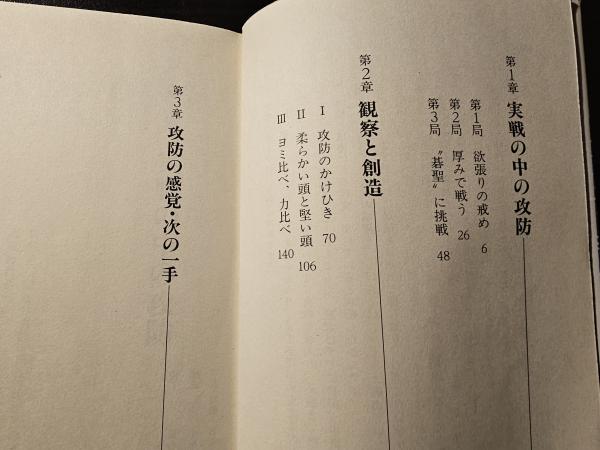 第1章 実戦の中の攻防
第1局 欲張りの戒め 6
第2局 厚みで戦う 26
第3局 〝碁聖〟に挑戦 48
第2章 観察と創造
Ⅰ 攻防のかけひき 70
Ⅱ 柔らかい頭と堅い頭 106
Ⅲ ヨミ比べ、力比べ 140
第3章 攻防の感覚・次の一手